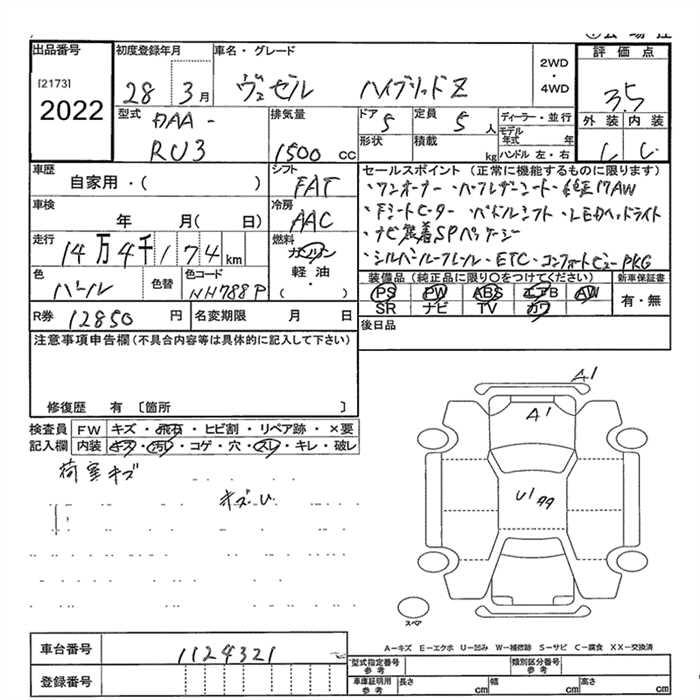 出品番号
[2173]
2022
初度登録年月
28 3月
車名・グレード
ヴェゼル ハイブリッドZ
2WD
・
4WD
評価点
3.5
外装 内装
C C
型式
DAA-
RU3
排気量
1500 CC
ドア
5
定員
5 人
形状
積載
kg
ディーラー・並行
モデル年式 年
ハンドル 左・右
車歴
自家用・( )
シフト
FAT
車検
年 月( 日)
冷房
AAC
走行
14万4千174km
燃料
ガソリン
軽油
・( )
色
パール
色替
色コード
NH788P
R券 12850円
名変期限 月 日
セールスポイント(正常に機能するものに限ります)
・ワンオーナー・ハーフレザーシート・純正17AW
・Fシートヒーター・パドルシフト・LEDヘッドライト
・ナビ装着SPパッケージ
・シルバールーフレール・ETC・コンフォートビューPKG
装備品(純正品に限り○をつけてください)
新車保証書
PS PW ABS エアB AW
SR ナビ TV カワ
有・無
後日品
注意事項申告欄(不具合内容等は具体的に記入して下さい)
修復歴 有 〔箇所 〕
検査員記入欄
FW キズ・飛石・ヒビ割・リペア跡・×要
内装 キズ・汚レ・コゲ・穴・スレ・キレ・破レ
荷室キズ
キズU
A1
A1
U1
スペア
A-キズ E-エクボ U-凹み W-補修跡 S-サビ C-腐食 XX-交換済
車台番号 1124321
登録番号
型式指定番号 参考
類別区分番号 参考
車庫証明用 参考
長さ cm
幅 cm
高さ cm